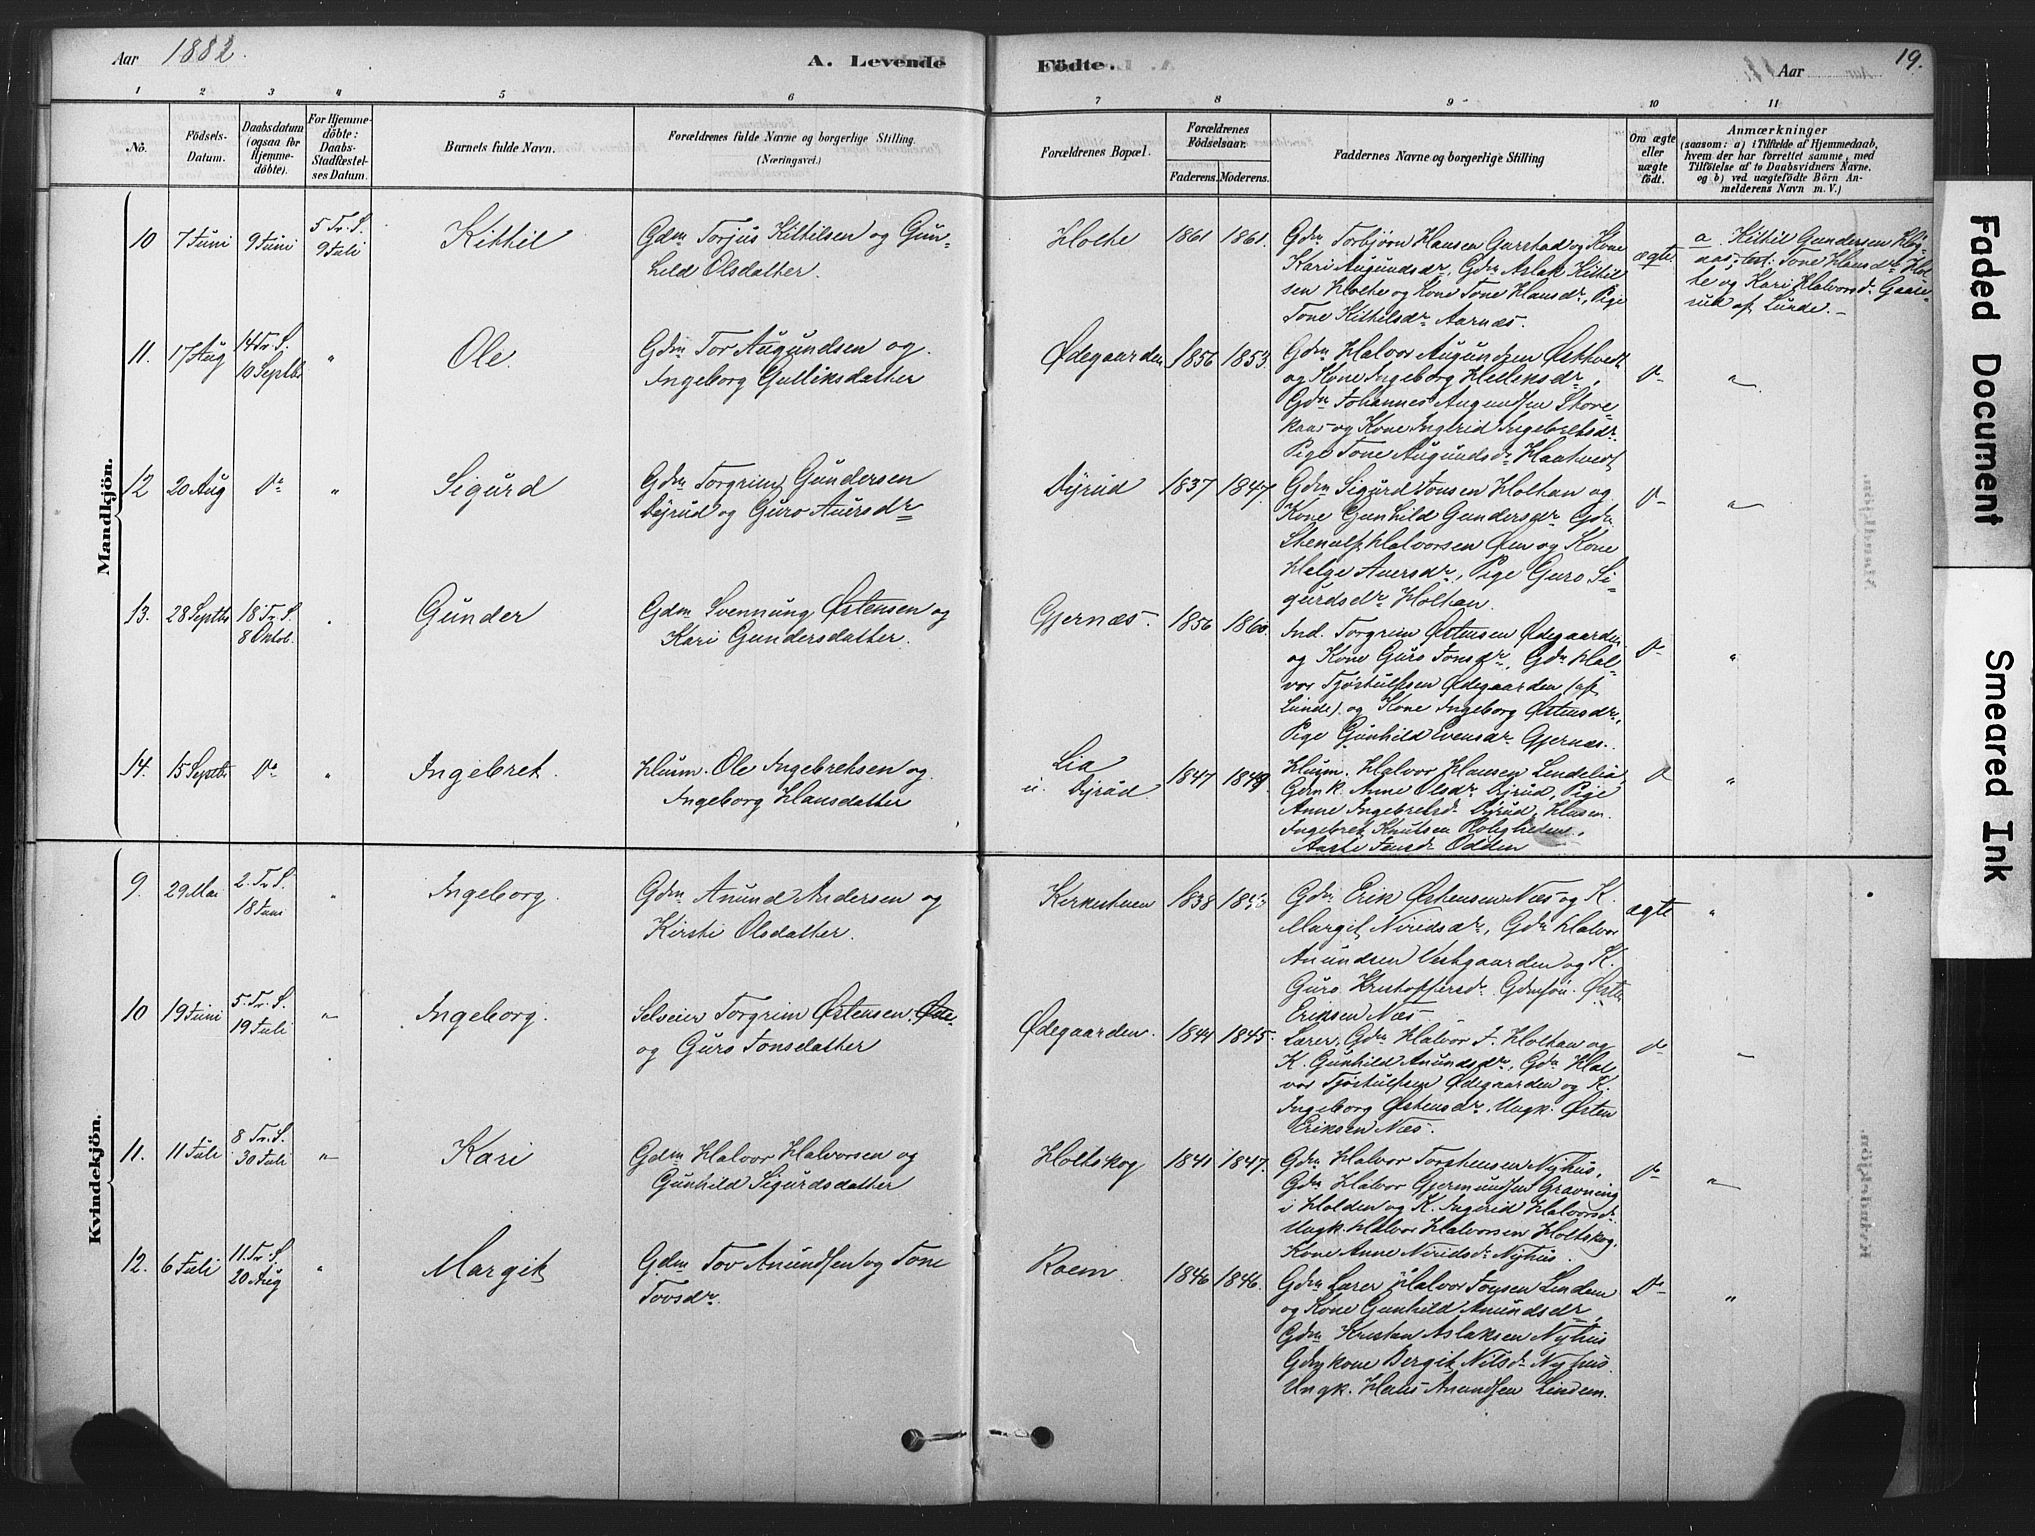 Aar 1882.
A. Levende
Födte.
Aar
19.
1 2 3 4 5 6 7 8 9 10 11
No.
Födsels-Datum.
Daabsdatum (ogsaa for Hjemmedöbte).
For Hjemmedöbte: Daabs-Stadfæstelses Datum.
Barnets fulde Navn.
Forældrenes fulde Navne og borgerlige Stilling.
(Næringsvei.)
Forældrenes Bopæl.
Forældrenes Födselsaar.
Faderens. Moderens.
Faddernes Navne og borgerlige Stilling
Om ægte eller uægte födt.
Anmærkninger
(saasom: a) i Tilfælde af Hjemmedaab,
hvem der har forrettet samme, med
Tilföielse af to Daabsvidners Navne.
og b) ved uægtefödte Börn Anmelderens Navn m. V.)
Mandkjön.
10 7 Juni 9 Juni 5 Tr. S. 9 Juli
Kittil
Gdm Torjus Kittilsen og Gunhild Olsdatter.
Holte 1861 1861.
Gdm Torbjørn Hansen Garstad og Kone
Kari Augundsdr, Gdm Aslak Kittilsen Holte og Kone Tone Hansdr, Pige
Tone Kittilsdr Aarnæs.
ægte
a. Kittil Gundersen
test: Tone Hansdr Holte og Kari Halvorsd.
af Lunde.
11. 17 Aug 14 Tr. S. 10 Septbr "
Ole.
Gdm Tor Augundsen og
Ingeborg Gulliksdatter
Ødegaarden 1856 1853.
Gdm Halvor Augundsen Østtvedt
og Kone Ingeborg Helliksdr,
Gdm Johannes Augundsen
og Kone Ingerid Ingebretsdr.
Pige Tone Augundsdr Haatvedt
Do "
12 20 Aug Do "
Sigurd
Gdm Torgrim Gundersen
Dyrud og Guro Auersdr
Dyrud 1837 1847.
Gdm Sigurd Jonsen Holtan og
Kone Gunhild Gundersdr Gdm
Stenulf Halvorsen Øen og Kone
Helge Auersdr, Pige Guro Sigurdsdr Holtan.
Do "
13. 28 Septbr 18 Tr. S. 8 Oktob. "
Gunder
Gdm Svennung Østensen og
Kari Gundersdatter.
Gjernæs. 1856 1860.
Ind. Torgrim Østensen Ødegaarden
og Kone Guro Jonsdr, Gdm Halvor Tjøstulfsen Ødegaarden (af
Lunde) og Kone Ingeborg Østensdr,
Pige Gunhild Evensdr Gjernæs.
Do "
14. 15 Septbr Do "
Ingebret.
Husm. Ole Ingebretsen og
Ingeborg Hansdatter
Lia
u. Dyrud. 1847 1849.
Husm. Halvor Hansen Lindelia,
Gdmk. Anne Olsdr Dyrud, Pige
Anne Ingebretsd. Dyrud, Husm.
Ingebret Knutsen Roligheden,
Aaste Jensdr Odden
Do "
Kvindekjön.
9. 29 Mai 2. Tr. S. 18 Juni "
Ingeborg.
Gdm Anund Andersen og
Kirsti Olsdatter.
Kirkestuen 1838
Gdm Erik Østensen Næs og K.
Margit Niridsdr, Gdm Halvor
Anundsen Vestgaarden og K.
Guro Kristoffersd. Gdmsøn. Østen
Eriksen Næs.
ægte "
10 19 Juni 5 Tr. S. 19 Juli "
Ingeborg.
Selveier Torgrim Østensen
og Guro Jonsdatter
Ødegaarden. 1844 1845.
Lærer, Gdm Halvor J. Holtan og
K. Gunhild Anundsdr, Gdm Halvor Tjøstulfsen Ødegaarden og K.
Ingeborg Østensdr, Ungk. Østen
Eriksen Næs.
Do "
11. 11 Juli 8 Tr. S. 30 Juli "
Kari
Gdm Halvor Halvorsen og
Gunhild Sigurdsdatter
Holtskog 1841 1847.
Gdm Halvor Torstensen Nyhus,
Gdm Halvor Gjermundsen Gravning
i Holden og K. Ingerid Halvorsdr.
Ungk. Halvor Halvorsen Holtskog,
Kone Anne Niridsdr Nyhus.
Do "
12. 6 Juli 11. Tr. S. 20 Aug "
Margit
Gdm Tov Anundsen og Tone
Tovsdr.
Roein. 1846 1846.
Gdm Lærer Halvor Jonsen Lindem
og Kone Gunhild Anundsdr,
Gdm Kristen Aslaksen Nyhus
Gdmkone Bergit Nilsdr Nyhus.
Ungk. Hans Anundsen Lindem.
Do "
Faded Document
Smeared Ink